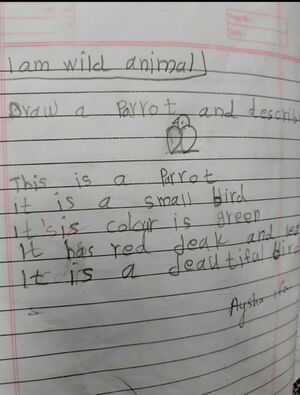 I am wild animal
Draw a Parrot and describ
This is a Parrot
it is a small bird
It 's is colour is green
It has red deak and
It is a deautiful bird
Aysha